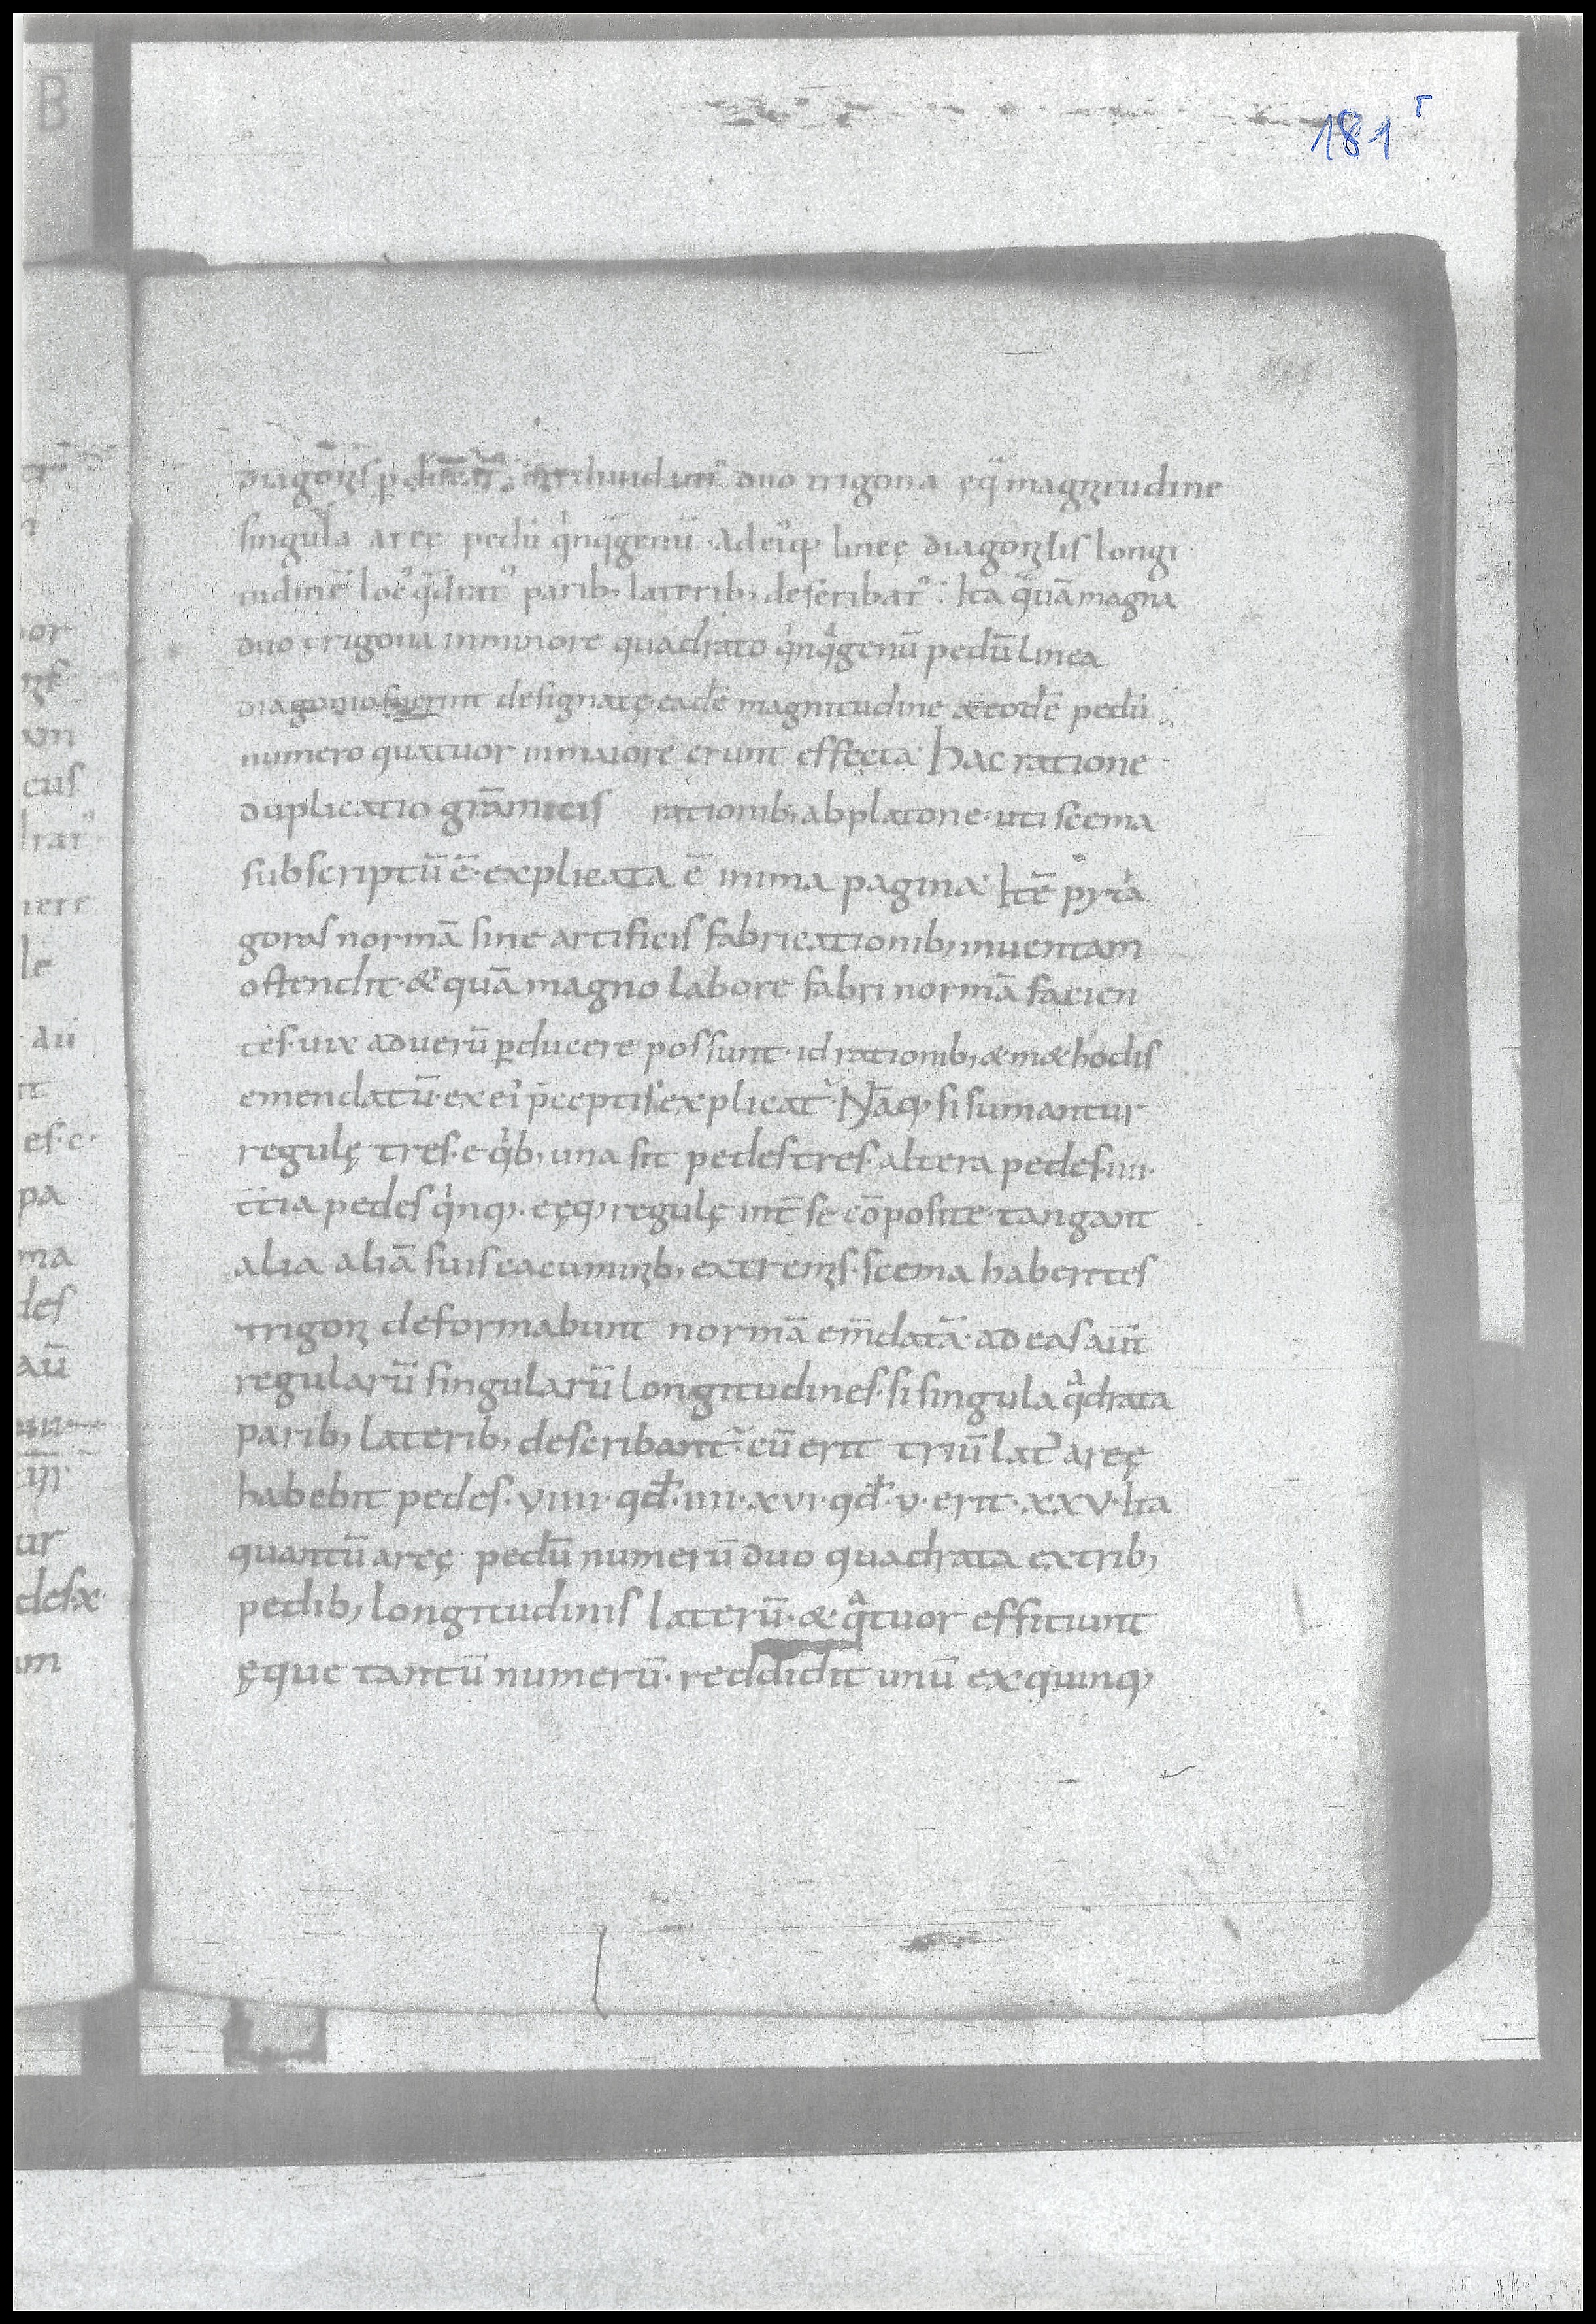 B
181 r
diagonꝫs ꝑ duo trigona ęq̄ magnꝫtudine
singula areę pedū qⁱnqᵃgenū · Ad eiꝰq; lineę diagonꝫlis longi
tudinē locꝰ q̄dratꝰ parib; laterib; describatꝰ. Ita quā magna
duo trigona in minore quadrato qⁱnqᵃgenū pedū linea
diagonio fuerint designatę eadē magnitudine & eodē pedū
numero quatuor in maiore erunt effecta. hac ratione
duplicatio grāmicis rationib; ab platone · uti scema
subscriptū ē · explicata ē in ima pagina. Itē pyta
goras normā sine artificis fabricationib; inuentam
ostendit · & quā magno labore fabri normā facien
tes · uix ad uerū ꝑducere possunt · id rationib; & m&hodis
emendatū · ex eiꝰ p̄ceptis explicatꝰ. Nāq; si sumantur
regulę tres · e qⁱb; una sit pedes tres · altera pedes · iiii ·
t̄tia pedes qⁱnq; · eęq; regulę int̄ se cōposite tangant
alia aliā suis cacuminꝫb; extremꝫs · scema habentes
trigonꝫ deformabunt normā em̄datā · ad eas aūt
regularū singularū longitudines · si singula qᵃdrata
parib; laterib; describantꝰ · cū erit triū latꝰ areę
habebit pedes · viiii · qđ · iiii · xvi · qđ · v · erit · xxv · Ita
quantū areę pedū numerū duo quadrata ex trib;
pedib; longitudinis laterū · & qᵃtuor efficiunt
ęque tantū numerū · reddidit unū ex quinq;